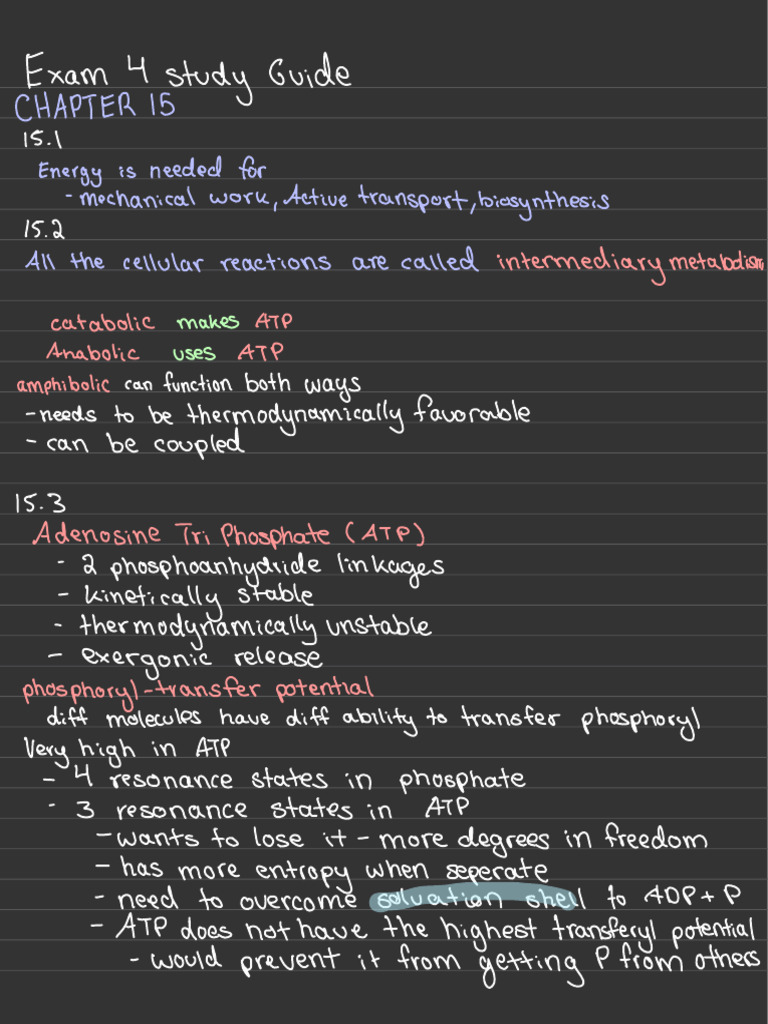 Exam 4 study Guide
CHAPTER 15
15.1
Energy is needed for
- mechanical work, Active transport, biosynthesis
15.2
All the cellular reactions are called intermediary metabolism
catabolic makes ATP
Anabolic uses ATP
amphibolic can function both ways
- needs to be thermodynamically favorable
- can be coupled
15.3
Adenosine Tri Phosphate (ATP)
- 2 phosphoanhydride linkages
- kinetically stable
- thermodynamically unstable
- exergonic release
phosphoryl-transfer potential
diff molecules have diff ability to transfer phosphoryl
Very high in ATP
- 4 resonance states in phosphate
- 3 resonance states in ATP
- wants to lose it - more degrees in freedom
- has more entropy when seperate
- need to overcome solvation shell to ADP + P
- ATP does not have the highest transferyl potential
- would prevent it from getting P from others